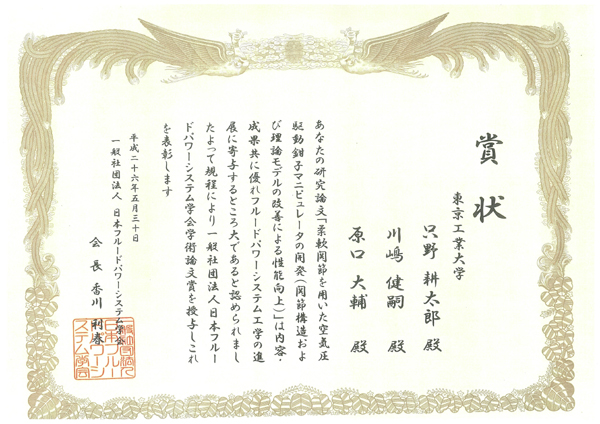 賞状
東京工業大学
只野 耕太郎 殿
川嶋 健嗣 殿
原口 大輔 殿
あなたの研究論文「柔軟関節を用いた空気圧
駆動鉗子マニピュレータの開発(関節構造およ
び理論モデルの改善による性能向上)」は内容・
成果共に優れフルードパワーシステム工学の進
展に寄与するところ大であると認められまし
たよって規程により一般社団法人日本フルー
ドパワーシステム学会学術論文賞を授与しこれ
を表彰します
平成二十六年五月三十日
一般社団法人 日本フルードパワーシステム学会
会長 香川 利春